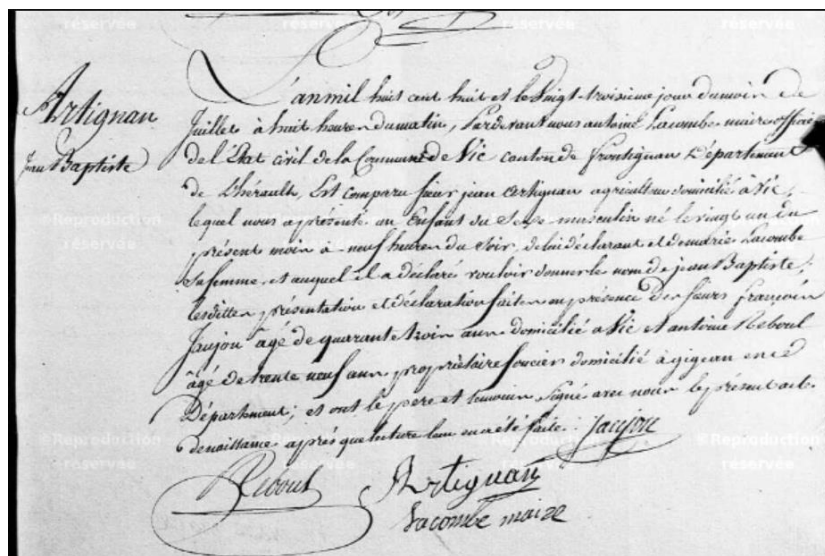 Artignan
Jean Baptiste
L'an mil huit cent huit et le vingt-troisieme jour du mois de
Juillet à huit heures du matin, Pardevant nous antoine Lacombe maire officier
de l'Etat civil de la Commune de Vic canton de frontignan Département
de L'hérault, Est comparu sieur jean artignan agriculteur domicilié à Vic,
lequel nous a présenté un Enfant du Sexe masculin né le vingt un du
présent mois à neuf heures du Soir, de lui déclarant et de marie Lacombe
Sa femme, et auquel il a déclaré vouloir donner le nom de jean Baptiste;
lesdittes présentation et déclaration faites en présence des sieurs françois
Jaujou âgé de quarante trois ans domicilié à Vic et antoine Reboul
âgé de trente neuf ans propriétaire foncier domicilié à gigean en ce
Département; et ont le pere et temoins signé avec nous le présent acte
de naissance après que lecture leur en a été faite. Jaujou
Reboul Artignan
Lacombe maire
©Reproduction réservée
©Reproduction réservée
©Reproduction réservée
©Reproduction réservée
©Reproduction réservée
©Reproduction réservée